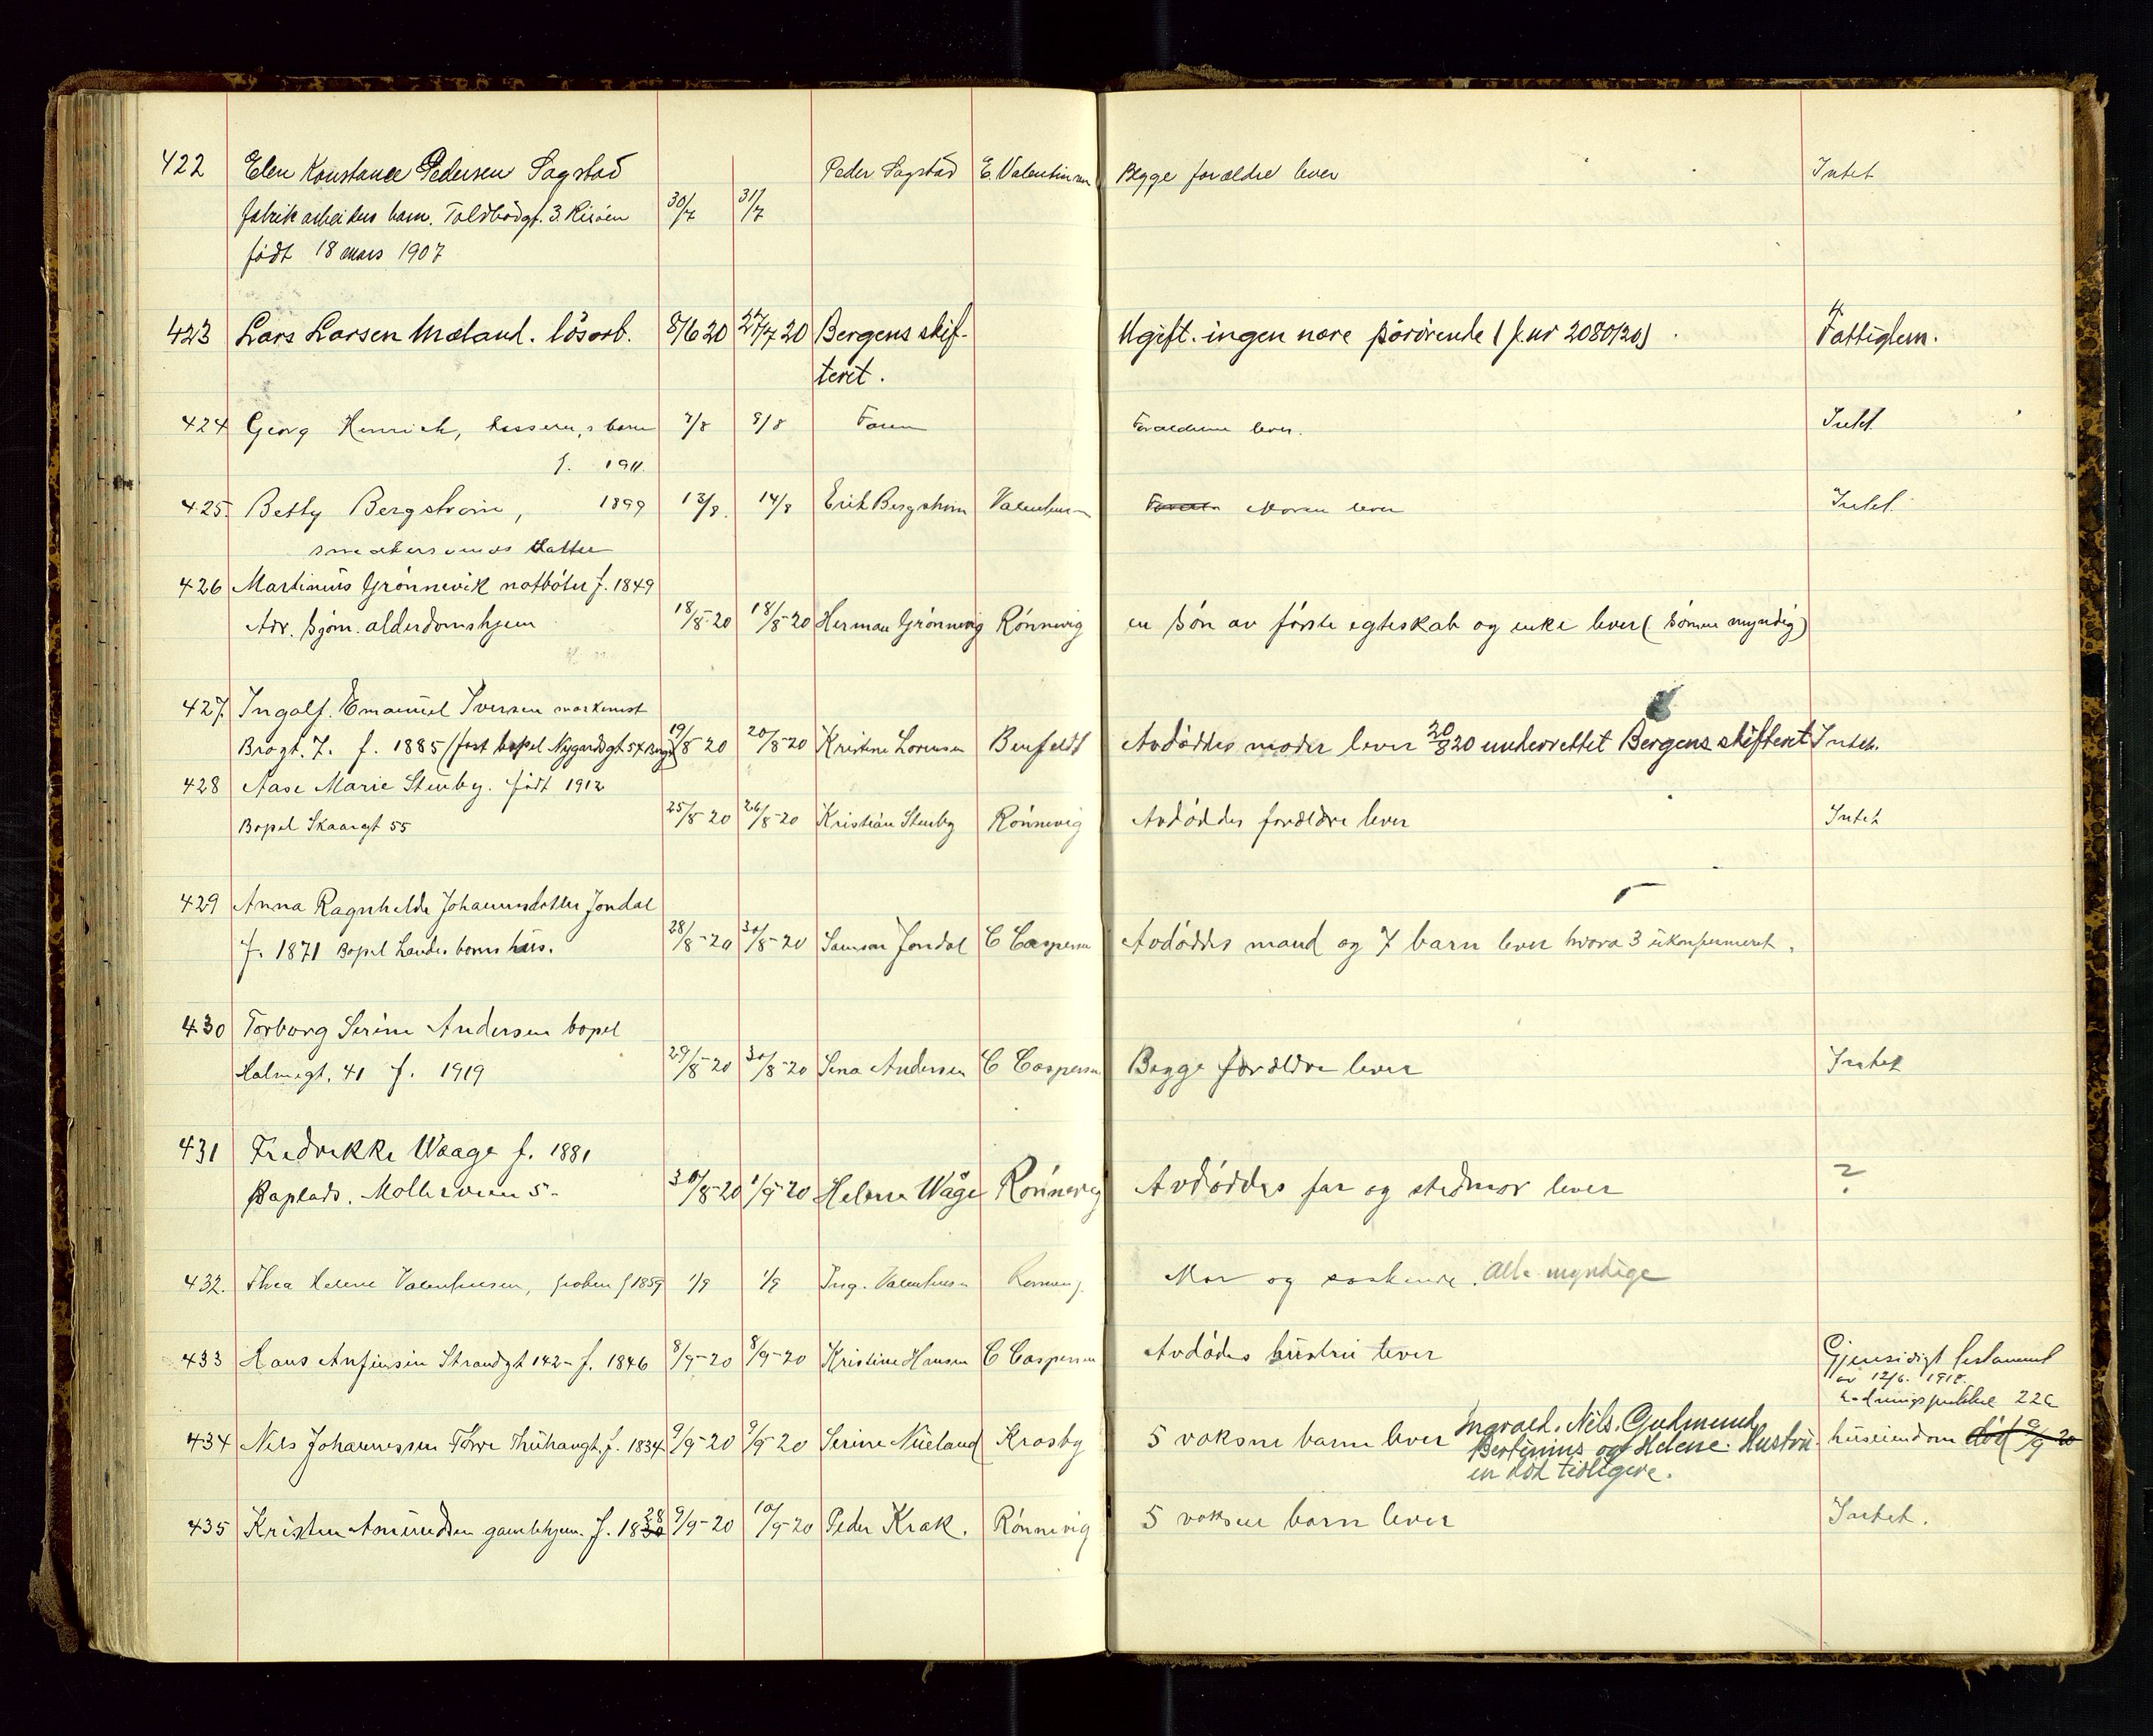 422 Elen Konstance Pedersen Sagstad Peder Sagstad E. Valentinsen Begge forældre lever Intet
fabrikarbeiders barn. Toldbodgt. 3. Risöen 30/7 31/7
födt 18 mars 1907
423 Lars Larsen Mæland. lösarb. 8/6 20 27/7 20 Bergens skif- Ugift. ingen nære pårörende (j.nr 2080/20) Fattiglem.
teret.
424 Georg Henrich, barn 7/8 9/8 Faren Forældrene lever. Intet
f. 1911.
425. Betty Bergström, 1899 13/8. 14/8 Erik Bergström Valentinsen Moren lever Intet.
datter
426 Martinius Grönnevik notböter f. 1849
Adr. Sjöm. alderdomshjem 18/8-20 18/8-20 Herman Grönnevig Rönnevig en sön av förste egteskab og enke lever (sönnen myndig)
427. Ingolf. Emanuel Iversen maskinist
Brogt. 7. f. 1885 (fast bopel Nygårdsgt 54 Bergen) 19/8-20 20/8-20 Kristine Lorensen Benfeldt Avdöddes moder lever 20/8 20 underrettet Bergens skifteret Intet.
428 Aase Marie Stenby. födt 1912
Bopel Skaaregt 55 25/8-20 26/8-20 Kristian Stenby Rönnevig Avdöddes forældre lever Intet
429 Anna Ragnhelda Johannesdatter Jondal
f. 1871 Bopel Landes barnshus. 28/8-20 30/8-20 Samson Jondal C Caspersen Avdöddes mand og 7 barn lever hvora 3 ukonfirmeret.
430 Torborg Serine Andersen bopel
Halmegt. 41 f. 1919 29/8-20 30/8-20 Sena Andersen C Caspersen Begge forældre lever Intet
431 Fredrikke Waage f. 1881
Baplads. Mollerveien 5- 30/8-20 1/9-20 Helene Wåge Rönnevig Avdöddes far og stedmor lever ?
432. Thea Helene Valentinsen, fröken f 1859 1/9 1/9 Ing. Valentinsen Mor og söskende. Alle myndige
433 Hans Anfinsen Strandgt 142- f. 1846 8/9-20 8/9-20 Kristine Hansen C Caspersen Avdödes hustru lever Gjensidigt testament
av 12/6. 1918.
434 Nils Johannessen Thuhaugt. f. 1834 9/9-20 9/9 20 Serine Nueland Krosby 5 voksne barn lever Ingvald. Nils. Gudmund, huseiendom död 9/9 20
Bertinius og Helene. Hustru-
en död tidligere.
435 Kristen Amundsen gamlehjem. f. 1828 9/9-20 10/9-20 Peder Krak. Rönnevig 5 voksne barn lever Intet.